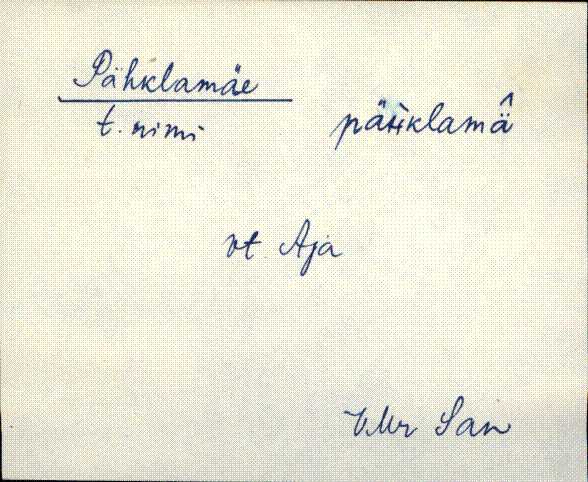 Pähklamäe
t. nimi pähklamä̂
vt Aja
VMr San